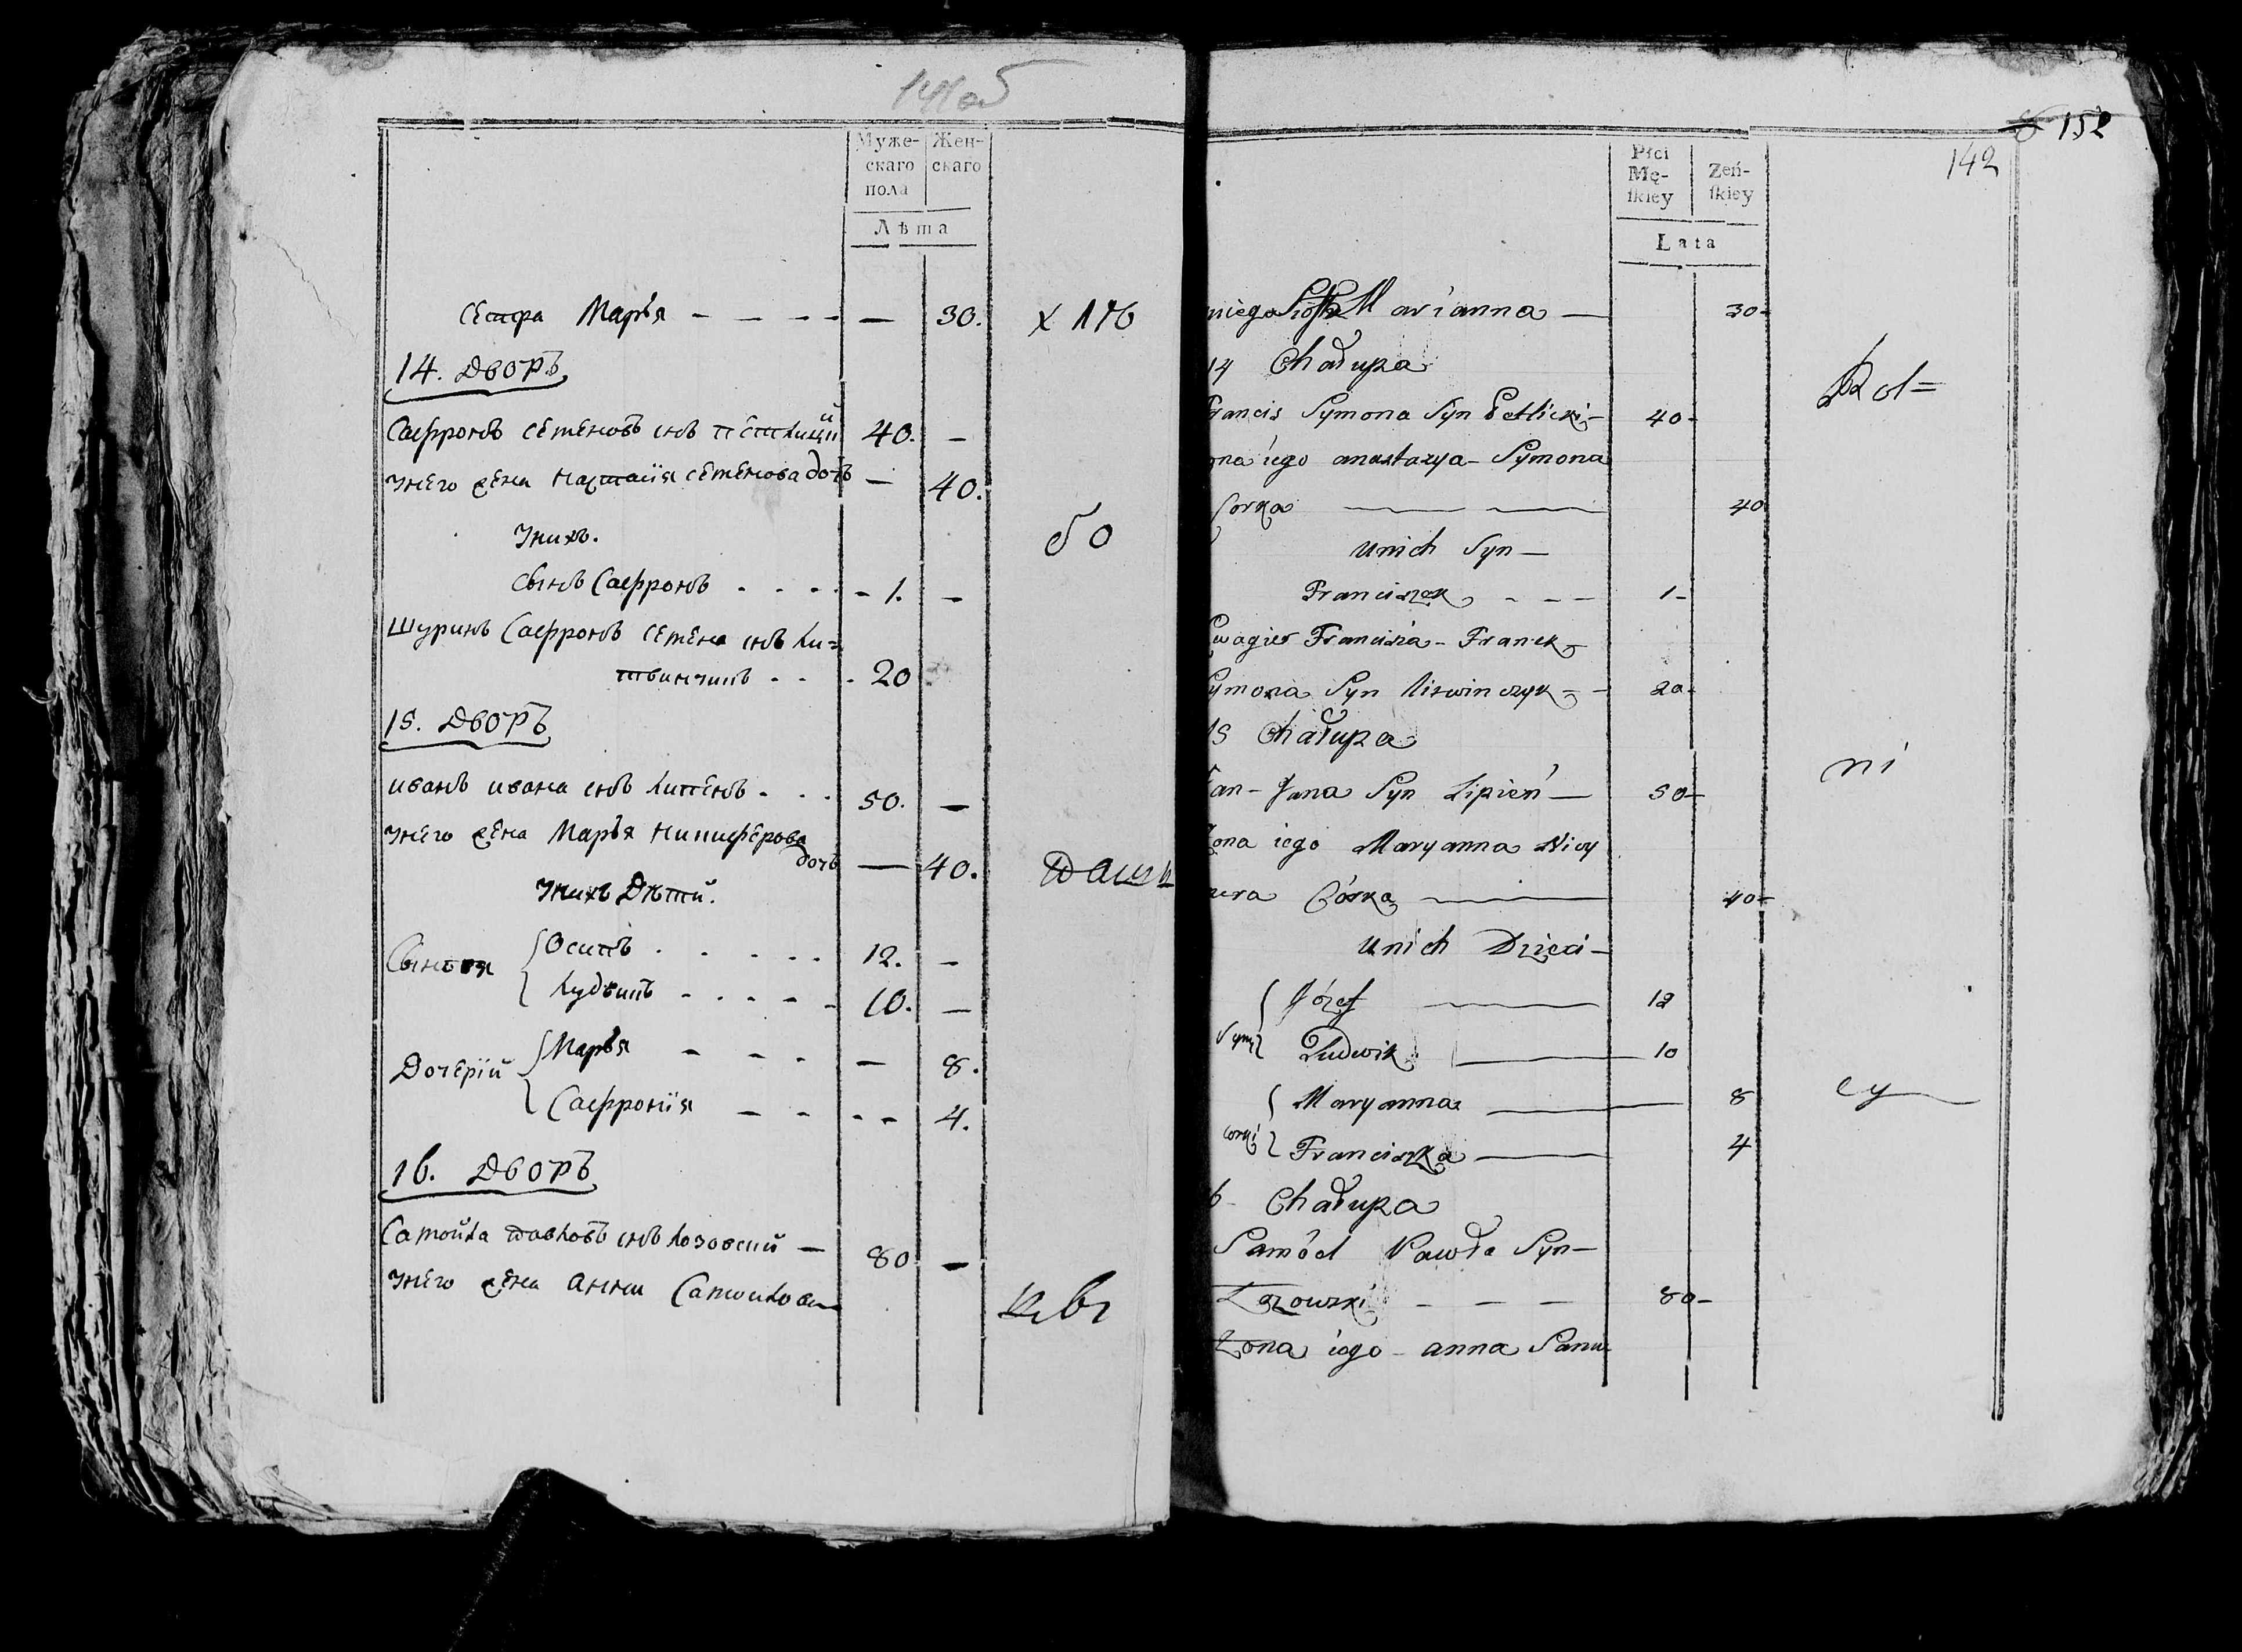 141об
Муже-
скаго
пола
Жен-
скаго
Лѣта
Сестра Марья 30.
14. Дворъ
Саффронъ Семеновъ снъ 40.
Унего жена Настасія Семенова дочь 40.
Унихъ.
Сынъ Саффронъ 1.
Шуринъ Саффронъ Семена снъ Ли=
твинчикъ 20
15. Дворъ
Иванъ Ивана снъ Липенъ 50.
Унего жена Марья Никиферова
дочь 40.
Унихъ Дѣтій.
Сыновя Осипъ 12.
Людвикъ 10.
Дочерій Марья 8.
Саффронія 4.
16. Дворъ
Самойла Павловъ снъ Лозовский 80
Унего жена Анна
152
142
Płci
Mę-
ſkiey
Zeń-
ſkiey
Lata
niego Siostra Marianna 30
14 Chałupa
Francis Symona Syn Petlicki 40
ona iego anastazya Symona
Corka 40
Unich Syn
Franciszek 1
Szwagier Francisza Franek
Symona Syn Litwinczyk 20
15 Chałupa
Jan Jana Syn Lipień 50
Żona iego Maryanna Nicy
Córka 40
Unich Dzieci
Syny Józef 12
Ludwik 10
Corki Maryanna 8
Franciszka 4
6 Chałupa
Samóel Pawła Syn
Lozowski 80
Żona iego anna